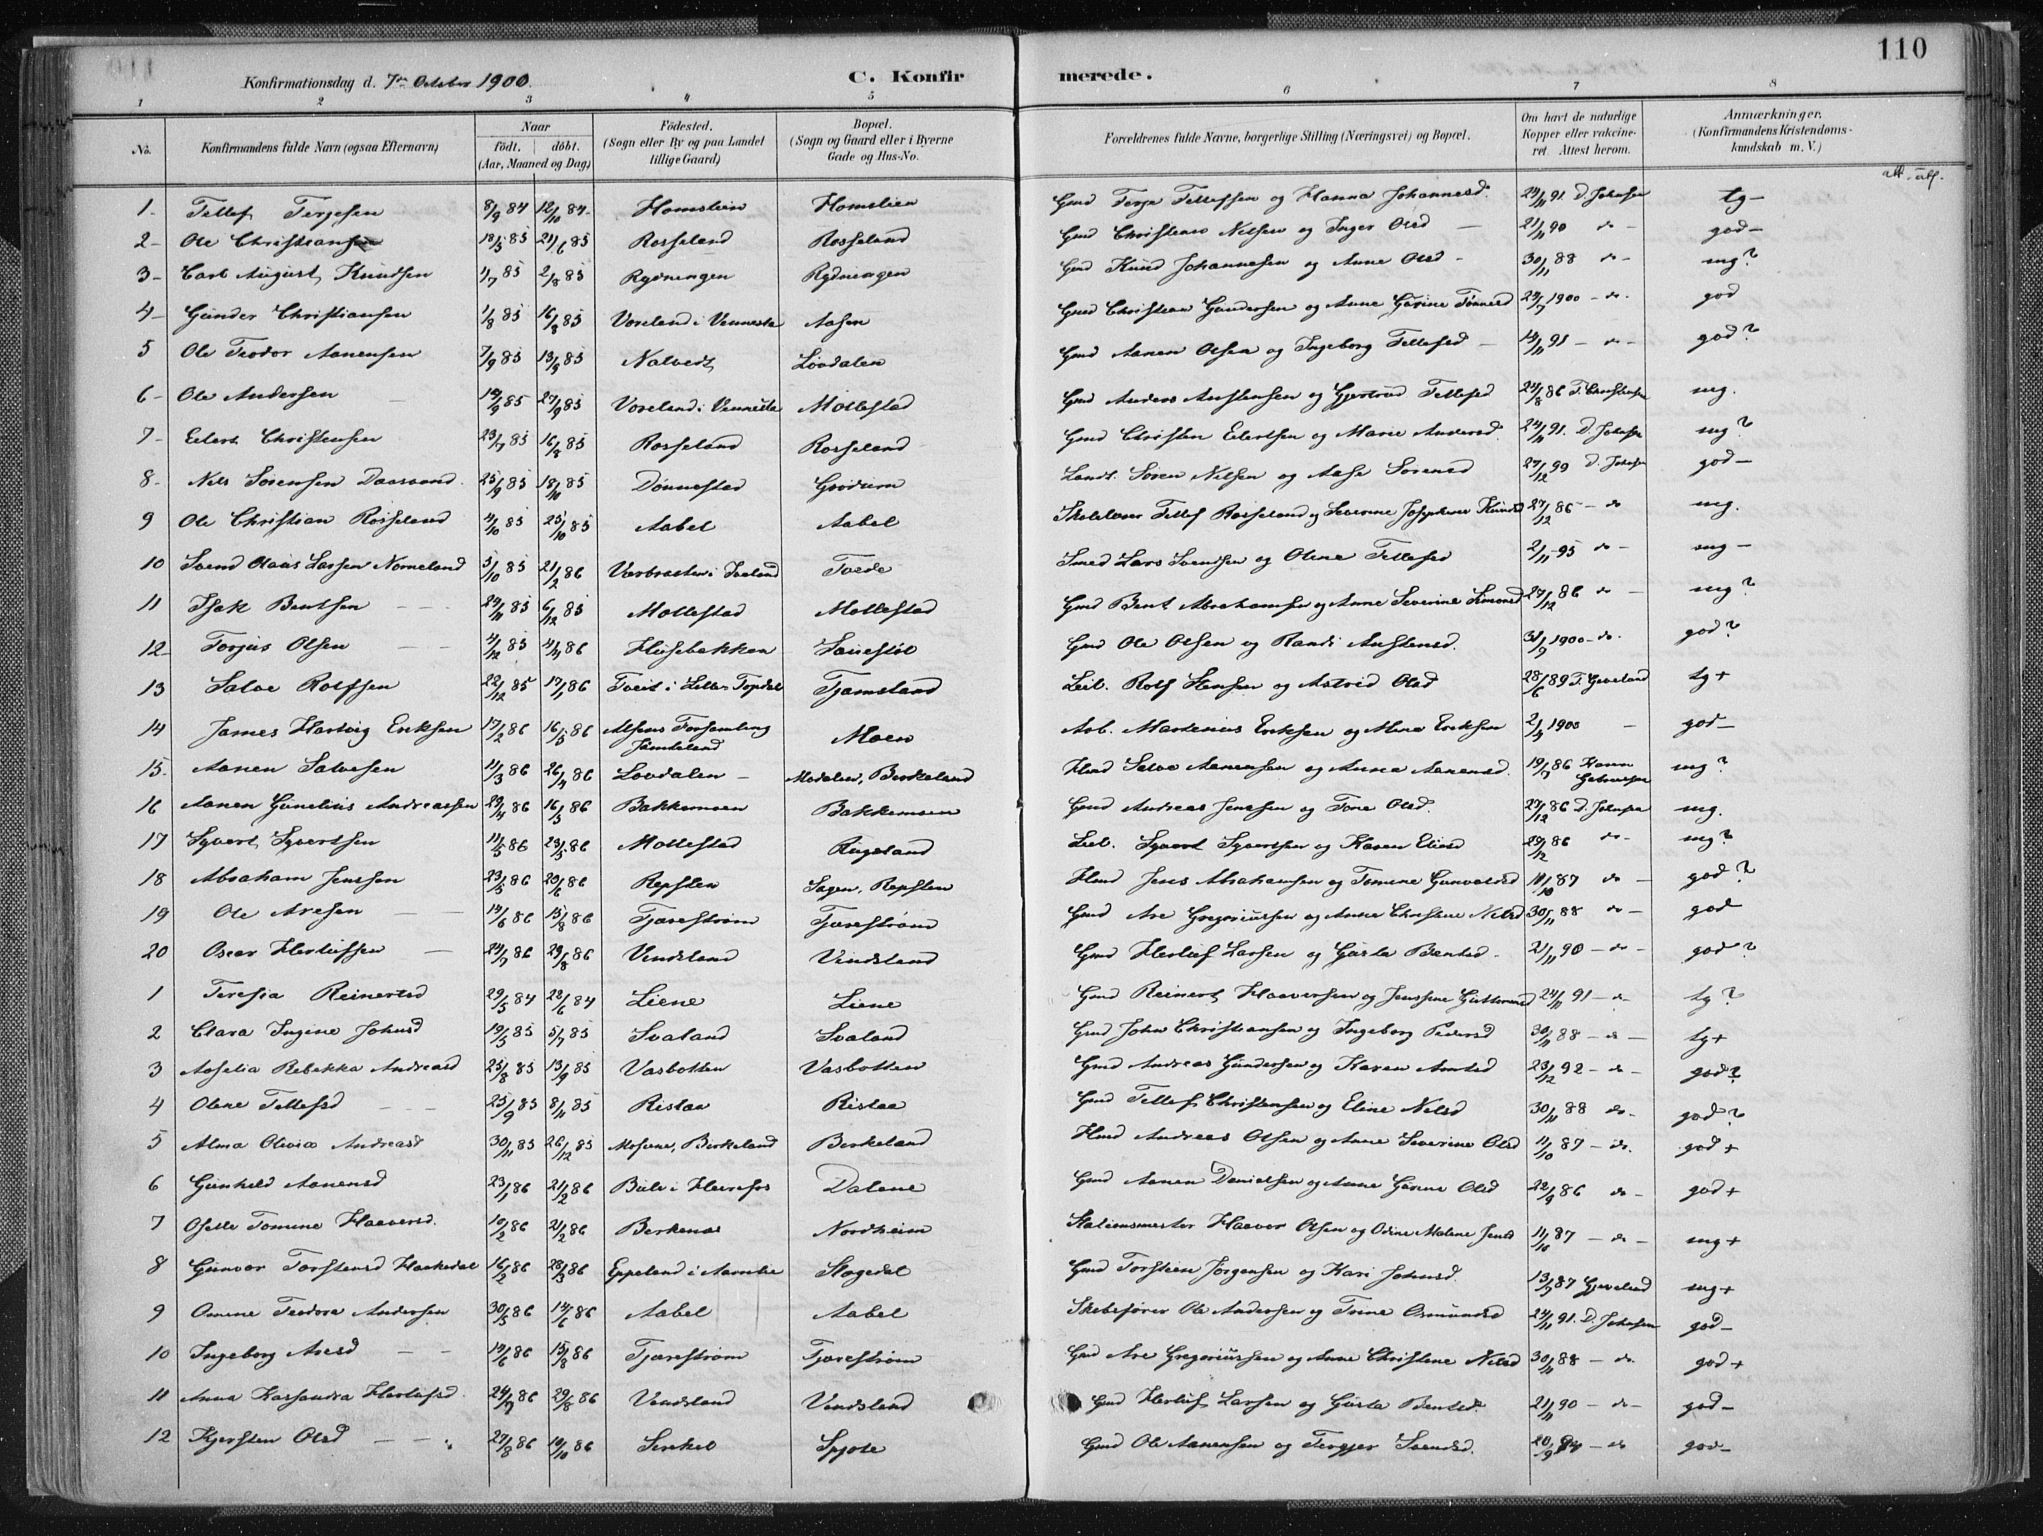 110
Konfirmationsdag d. 7de October 1900.
C. Konfirmerede.
1 2 3 4 5 6 7 8
No. Konfirmandens fulde Navn (ogsaa Efternavn) Naar født. døbt. (Aar, Maaned og Dag) Fødested. (Sogn eller By og paa Landet tillige Gaard) Bopæl. (Sogn og Gaard eller i Byerne Gade og Hus-No. Forældrenes fulde Navne, borgerlige Stilling (Næringsvei) og Bopæl. Om havt de naturlige Kopper eller vakcineret. Attest herom. Anmærkninger. (Konfirmandens Kristendomskundskab m. V.)
1 Tellef Terjesen 8/9 84 12/10 84 Homstein Homstein Gmd Terje Tellefsen og Hanna Johannesd. 24/11 91 D. Johnsen tg -
2 Ole Christiansen 18/5 85 21/6 85 Rosseland Rosseland Gmd Christian Nilsen og Inger Olsd 21/11 90 do god -
3 Carl August Knudsen 1/7 85 2/8 85 Rydningen Rydningen Gmd Knud Johannesen og Anne Olsd 30/11 88 do mg?
4 Gunder Christiansen 1/8 85 16/8 85 Voreland i Vennesla Aasen Gmd Christian Gundersen og Anne Gurine Tønnesd 24/7 1900 do. god
5 Ole Teodor Aanensen 7/9 85 13/9 85 Nalvedt Løvdalen Gmd Aanen Olsen og Ingeborg Tellefsd 14/11 91 do god?
6 Ole Andersen 14/9 85 27/9 85 Voreland i Vennesla Mollestad Gmd Anders Austensen og Gjertrud Tellefsd 24/8 86 mg.
7 Eilert Christensen 23/7 85 16/8 85 Rosseland Rosseland Gmd Christen Eilertsen og Marie Andersd. 24/11 91. D. Johnsen mg?
8 Nils Sørensen 25/9 85 18/10 85 Dønnestad Grødum Landh. Søren Nilsen og Aase Sørensd 27/12 99 D. Johnsen god -
9 Ole Christian Rosseland 4/10 85 25/10 85 Aabel Aabel Skolelærer Tellef Rosseland og Severine Josephine Knudsd 27/12 86 do mg.
10 Svend Olaus Larsen Nomeland 5/10 85 21/2 86 Tvede Smed Lars Svendsen og Oline Tellefsd 2/11 95 do mg -
11 Isak Bentsen 24/11 85 6/12 85 Mollestad Mollestad Gmd Bent Abrahamsen og Anne Severine Simonsd 27/12 86 do mg?
12 Torjus Olsen 4/12 85 4/4 86 Husebakken Gmd Ole Olsen og Randi Austensd. 31/9 1900 do. god?
13 Salve Rolfsen 22/12 85 17/1 86 Tveit i Topdal Tjomsland Leil. Rolf og Astrid Olsd 28/6 89 tg +
14 James Hartvig Eriksen 17/2 86 16/5 86 Moen Arb. Martinius Eriksen og Eriksen 2/4 1900 god -
15. Aanen Salvesen 11/3 86 26/4 86 Løvdalen Modalen, Birkeland Hmd Salve Aanensen og Anna Aanensd. 19/7 86 mg?
16 Aanen Gunelius Andreassen 29/4 86 16/5 86 Bakkemoen Bakkemoen Gmd Andreas Jenssen og Tone Olsd. 27/12 86 D. Johnsen mg.
17 Syvert Syvertsen 11/5 86 23/5 86 Mollestad Rugsland Leil. Syvert Syvertsen og Karen Eliasd 29/12 86 do mg?
18 Abraham Jenssen 23/5 86 20/6 86 Repsten Sagen, Repsten Hmd Jens Abrahamsen og Tomine Gunvaldsd 11/10 87 do god?
19 Ole Aresen 14/6 86 15/8 86 Tjærestrøm Tjærestrøm Gmd Are Gregoriussen og Anne Christine Nilsd 30/11 88 do god
20 Oscar Herlufsen 24/7 86 29/8 86 Vendsland Vendsland Gmd Herluf Larsen og Gusta Bentsd. 21/11 90 do god?
1 Teresia Reinertsd 29/5 84 22/6 84 Liene Liene Gmd Reinert Haaversen og Jensine Guttormsd 24/11 91 do tg?
2 Clara Ingine Johnsd 19/5 85 5/7 85 Svaland Svaland Gmd John Christiansen og Ingeborg Pedersd 30/11 88 do tg +
3 Aaselia Rebekka Andreasd 25/8 85 13/9 85 Vasbotten Vasbotten Gmd Andreas Gundersen og Karen Arntsd 23/12 92 do god?
4 Oline Tellefsd 25/9 85 8/11 85 Ristaa Ristaa Gmd Tellef Christensen og Eline Nilsd 30/11 88 do. god?
5 Alma Olivia Andreasd 30/11 85 26/12 85 Mosene, Birkeland Birkeland Hmd Andreas Olsen og Anne Severine Olsd 11/10 87 do. god +
6 Gunhild Aanensd 23/1 86 21/2 86 Dalene Gmd Aanen Danielsen og Anne Gurine Olsd 22/9 86 do god +
7 Tomine Haaversd. 10/2 86 21/2 86 Birkenæs Nordheim Stationsmester Haaver Olsen og Odine Malene Jensd 11/10 87 do mg +
8 Gunvor Torstensd Haakedal 16/2 86 28/3 86 Eppeland i Aamlie Stogedal Gmd Torstein Jørgensen og Kari Johnsd. 13/9 87 Gjeveland mg +
9 Omine Teodora Andersen 30/5 86 14/6 86 Aabel Aabel Skibsfører Ole Andersen og Trine Osmundsd 24/11 91. D. Johnsen god -
10 Ingeborg Aresd 14/6 86 15/8 86 Tjærestrøm Tjærestrøm Gmd Are Gregoriussen og Anne Christine Nilsd 30/11 88 do. god +
11 Anna Kassandra Herlufsd. 24/7 86 29/8 86 Vendsland Vendsland Gmd Herluf Larsen og Gusta Bentsd. 21/11 90 do god -
12 Kjersten Olsd 27/8 86 10/10 86 Senkel Spjote Gmd Ole Aanensen og Tergjer Svendsd. 20/9 do god -